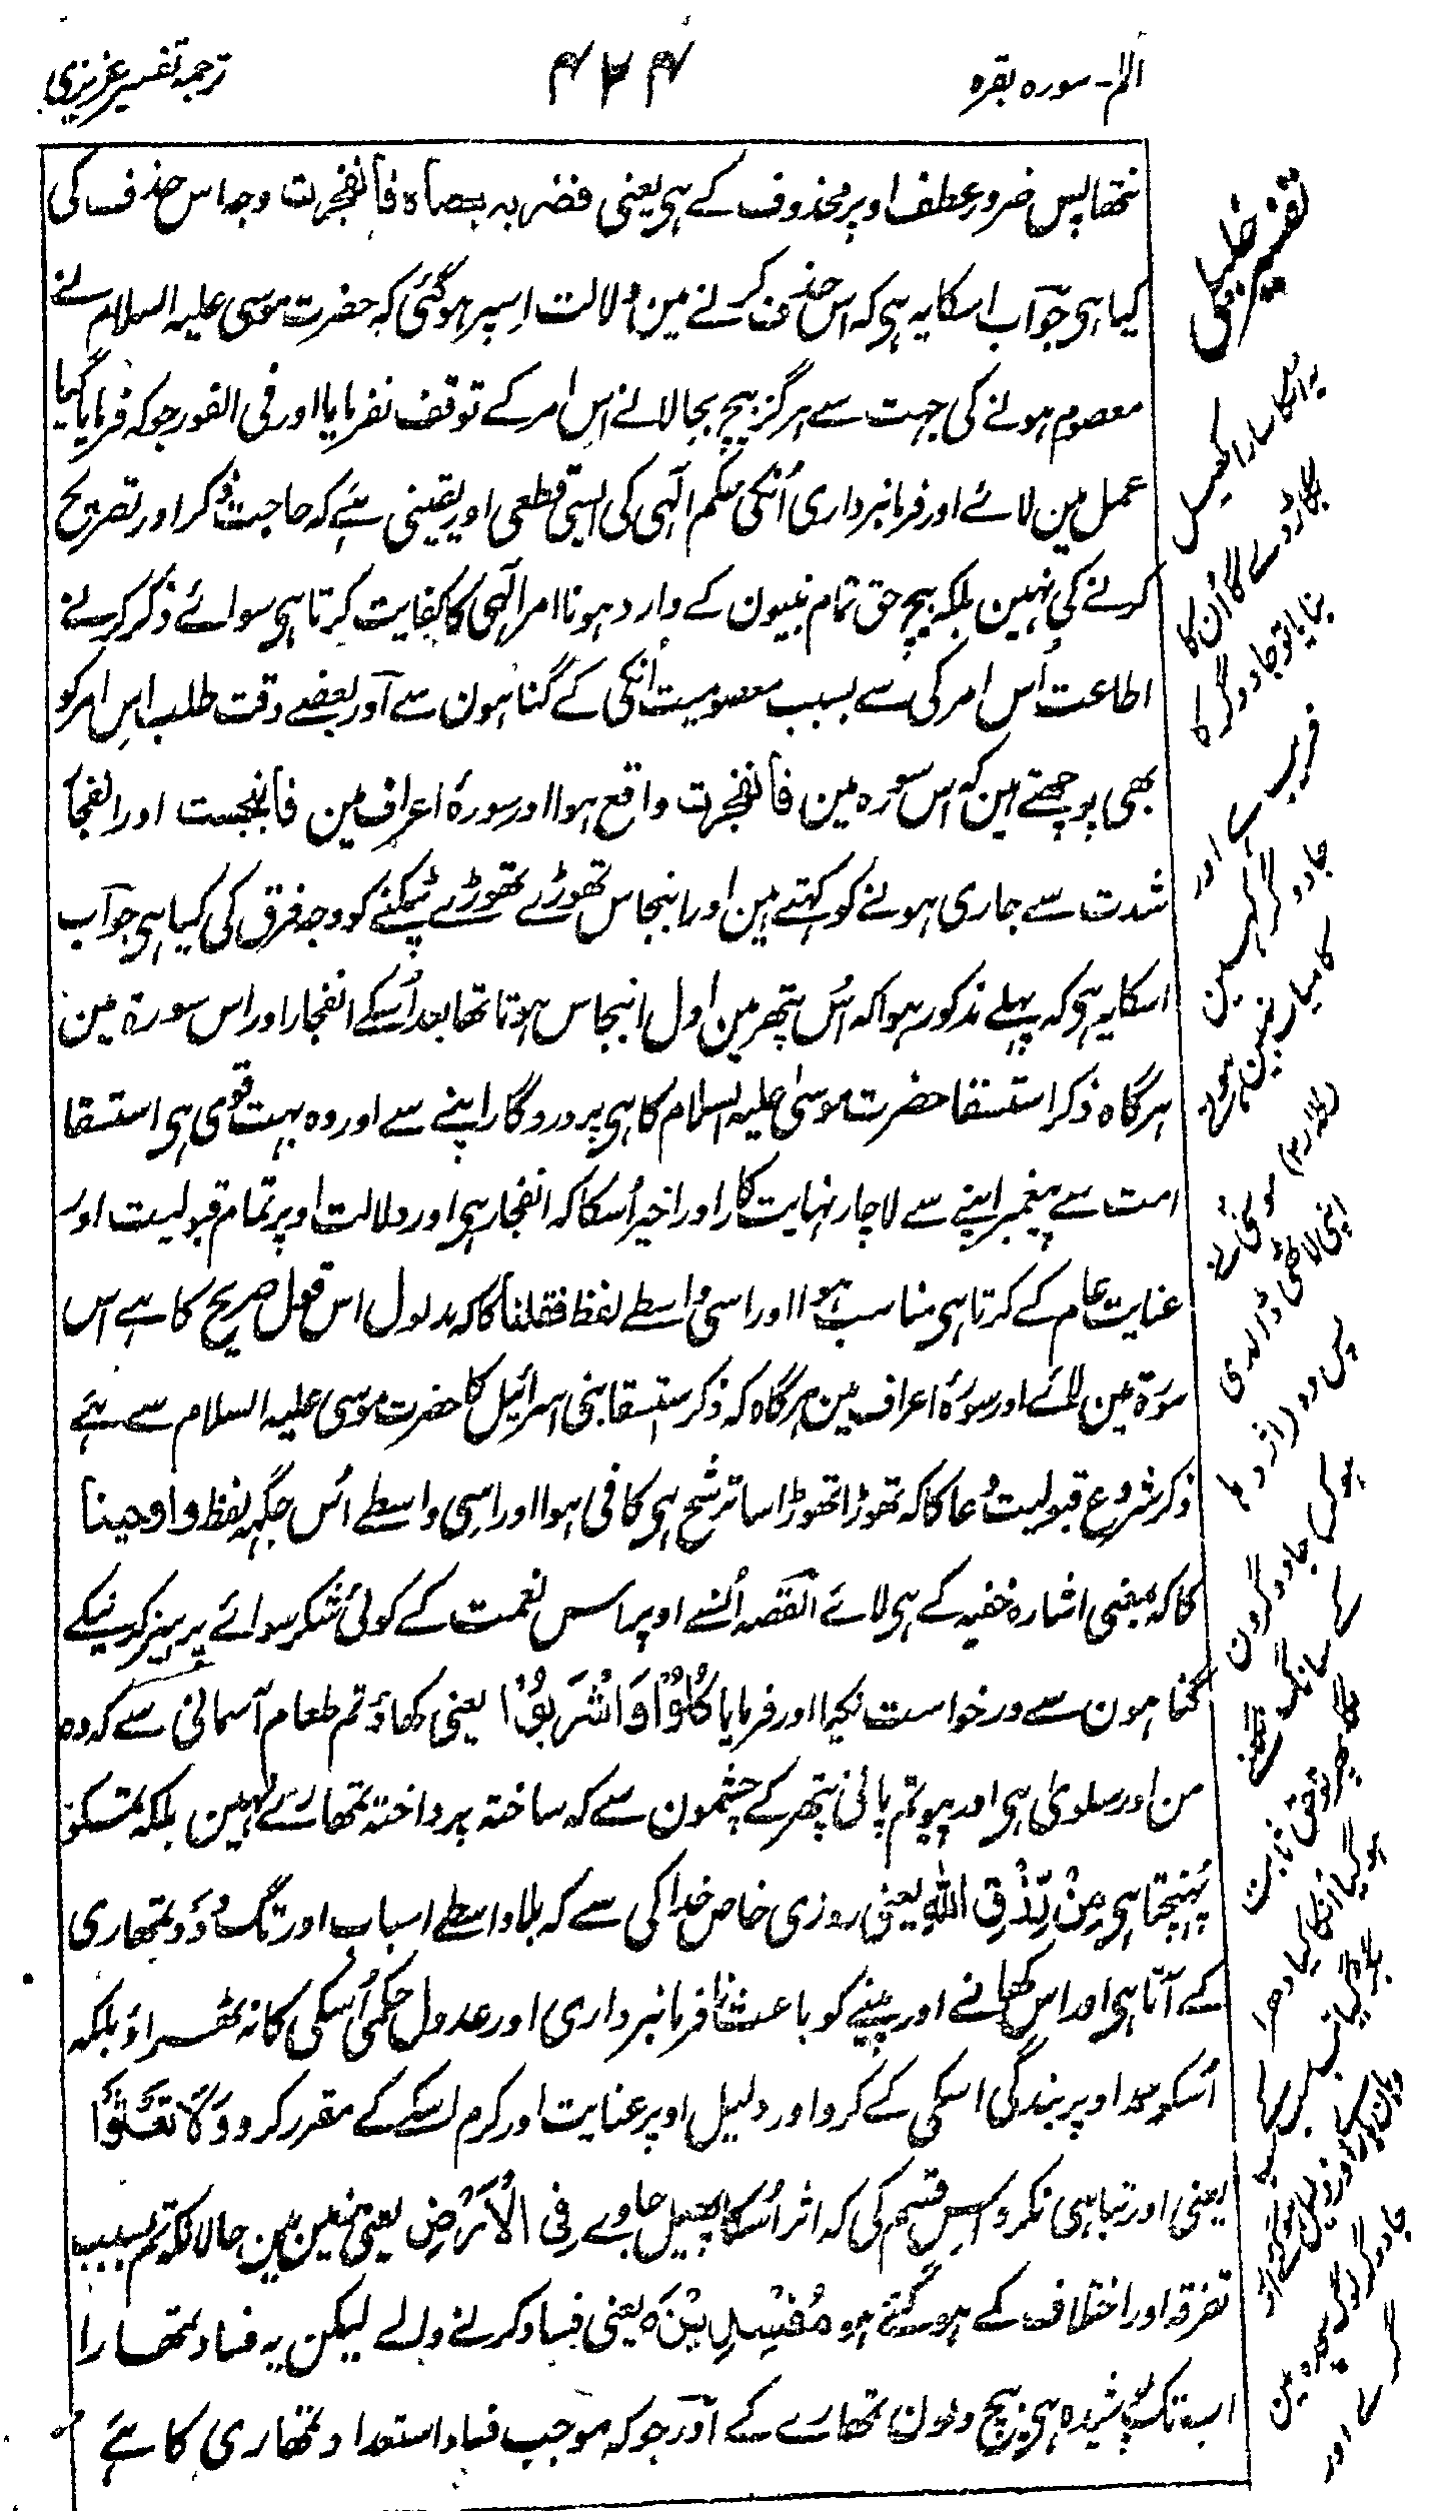 الم - سورہ بقرہ
۴۲۴
ترجمہ تفسیر عزیزی
نتھا پس ضرور عطف اوپر محذوف کے ہی یعنی فضربہ بعصاہ فانفجرت وجہ اس حذف کی
کیا ہی جوآب اسکا یہ ہی کہ اس حذف کرنے مین دلالت اسپر ہوگئی کہ حضرت موسی علیہ السلام نے
معصوم ہونے کی جہت سے ہرگز بیچ بجا لانے اس امر کے توقف نفرمایا اور فی الفور جو کہ فرمایا گیا
عمل مین لائے اور فرمانبرداری اُنکی حکم الٓہی کی ایسی قطعی اور یقینی ہے کہ حاجت ذکر اور تصریح
کرنے کی نہین بلکہ بیچ حق تمام نبیون کے وارد ہونا امر الٓہی کا کفایت کرتا ہی سوائے ذکر کرنے
اطاعت اُس امر کی سے بسبب معصومیت اُنکی کے گناہون سے آور بعضے دقت طلب اس امر کو
بھی پوچھتے ہین کہ اس سورہ مین فانفجرت واقع ہوا اور سورۂ اعراف مین فانبجست اور انفجار
شدت سے جاری ہونے کو کہتے ہین اور انبجاس تھوڑے تھوڑے ٹپکنے کو وجہ فرق کی کیا ہی جوآب
اسکا یہ ہی کہ پہلے مذکور ہوا کہ اُس پتھر مین اول انبجاس ہوتا تھا بعد اُسکے انفجار اور اس سورۃ مین
ہرگاہ ذکر استسقا حضرت موسیٰ علیہ السلام کا ہی پروردگار اپنے سے اور وہ بہت قوی ہی استسقا
امت سے پیغمبر اپنے سے لاچار نہایت کار اور اخیر اُسکا کہ انفجار ہی اور دلالت اوپر تمام قبولیت اور
عنایت عام کے کرتا ہی مناسب ہوا اور اسی واسطے لفظ فقلنا کا کہ مدلول اس قول صریح کا ہے اس
سورۃ مین لائے اور سورۂ اعراف مین ہرگاہ کہ ذکر استسقا بنی اسرائیل کا حضرت موسی علیہ السلام سے ہے
ذکر شروع قبولیت دعا کا کہ تھوڑا تھوڑا سا ترشح ہی کافی ہوا اور اسی واسطے اُس جگہہ لفظ واوحینا
کا کہ بمعنی اشارہ خفیہ کے ہی لائے القصہ اُنسے اوپر اس نعمت کے کوئی شکر سوائے پرہیز کرنیکے
گناہون سے درخواست نکیا اور فرمایا کُلُوْا وَاشْرَبُوْا یعنی کھاؤ تم طعام آسمانی سے کہ وہ
من اور سلویٰ ہی اور پیو تم پانی پتھر کے چشمون سے کہ ساختہ پرداختہ تمھارے نہین بلکہ تمکو
پہنچتا ہی مِنْ رِّزْقِ اللهِ یعنی روزی خاص خدا کی سے کہ بلا واسطے اسباب اور تگ و دو تمھاری
کے آتا ہی اور اس کھانے اور پینے کو باعث نافرمانبرداری اور عدول حکمی اُسکی کا نہ ٹھہراؤ بلکہ
اُسکو مدد اوپر بندگی اسکی کے کرو اور دلیل اوپر عنایت اور کرم اسکے کے مقرر کرو وَلَا تَعْثَوْا
یعنی اور تباہی نکرو اس قسم کی کہ اثر اُسکا پھیل جاوے فِی الْاَرْضِ یعنی زمین مین حالانکہ تم بسبب
تفرقہ اور اختلاف کے ہوگئے ہو مُفْسِدِيْنَ یعنی فساد کرنے والے لیکن یہ فساد تمھارا
ابتک پوشیدہ ہی بیچ دلون تمھارے کے آور جو کہ موجب فساد استعداد تمھاری کا ہے
بگاڑ دے گا اُن کا
بنایا تو جادوگر کا
فریب ہے اور
جادوگر کہین
کامیاب نہین ہوتا
اپنی لاٹھی ڈالدی
ہوکر جادوگرون